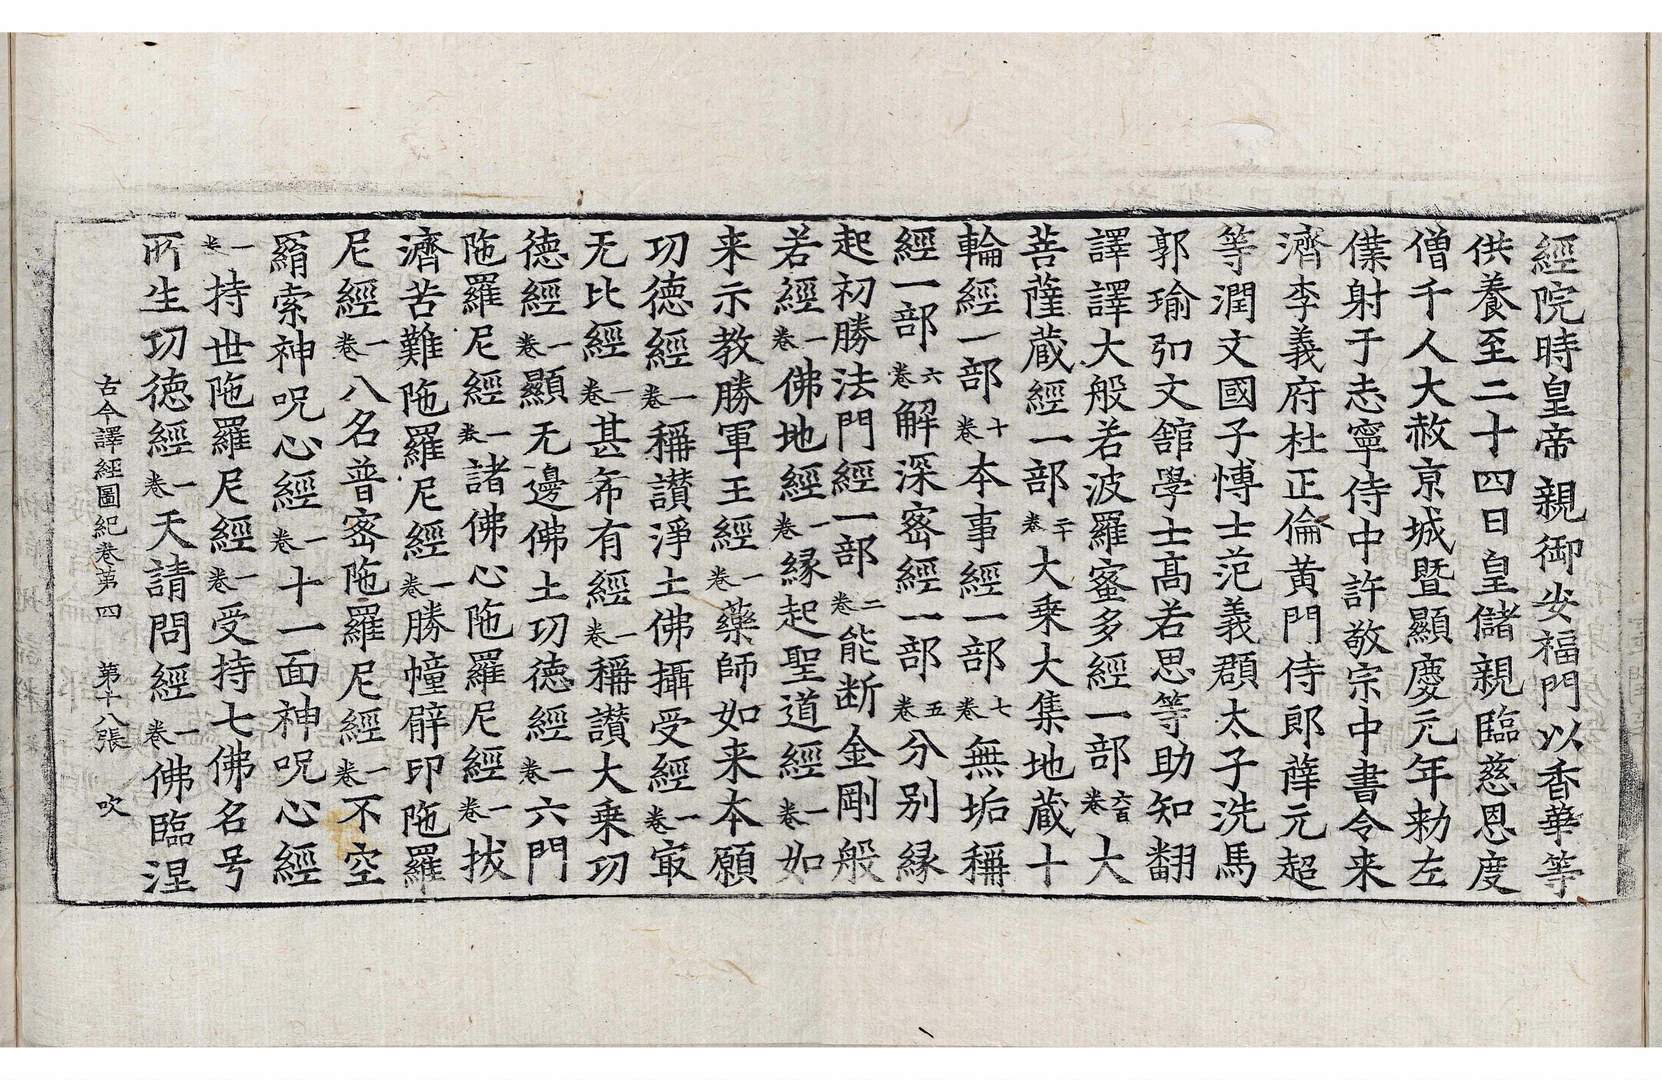 經院時皇帝親御安福門以香華等
供養至二十四日皇儲親臨慈恩度
僧千人大赦京城暨顯慶元年勅左
僕射于志寧侍中許敬宗中書令来
濟李義府杜正倫黃門侍郎薛元超
等潤文國子博士范義頵太子洗馬
郭瑜弘文舘學士高若思等助知翻
譯譯大般若波羅蜜多經一部六百卷大
菩薩蔵經一部二十卷大乗大集地蔵十
輪經一部十卷本事經一部七卷無垢稱
經一部六卷解深宻經一部五卷分别縁
起初勝法門經一部二卷能断金剛般
若經一卷佛地經一卷縁起聖道經一卷如
来示教勝軍王經一卷藥師如来本願
功德經一卷稱讃淨土佛攝受經一卷㝡
无比經一卷甚希有經一卷稱讃大乗功
德經一卷顯无邊佛土功德經一卷六門
陁羅尼經一卷諸佛心陁羅尼經一卷拔
濟苦難陁羅尼經一卷勝幢臂印陁羅
尼經一卷八名普宻陁羅尼經一卷不空
羂索神呪心經一卷十一面神呪心經
一卷持世陁羅尼經一卷受持七佛名号
所生功德經一卷天請問經一卷佛臨涅
古今譯經圖紀卷第四 第十八張 吹